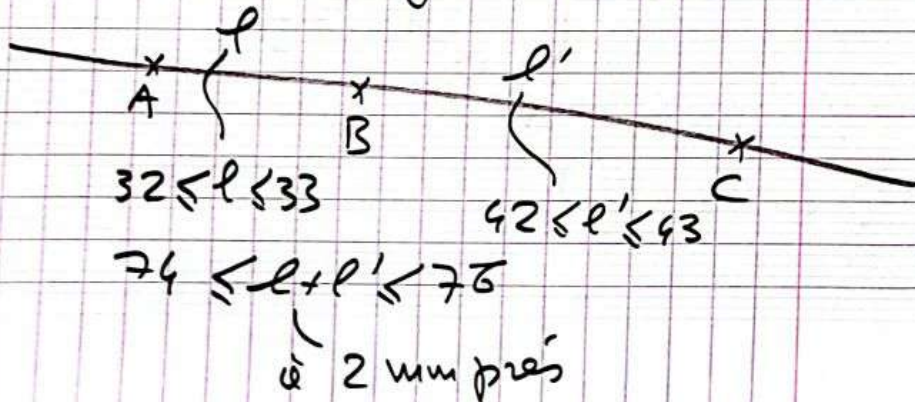 l
l'
A
B
C
32 ≤ l ≤ 33
42 ≤ l' ≤ 43
74 ≤ l + l' ≤ 76
à 2 mm près